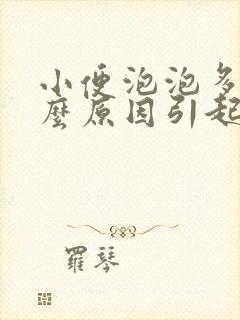 小便泡泡多
麼原因引起
羅琴